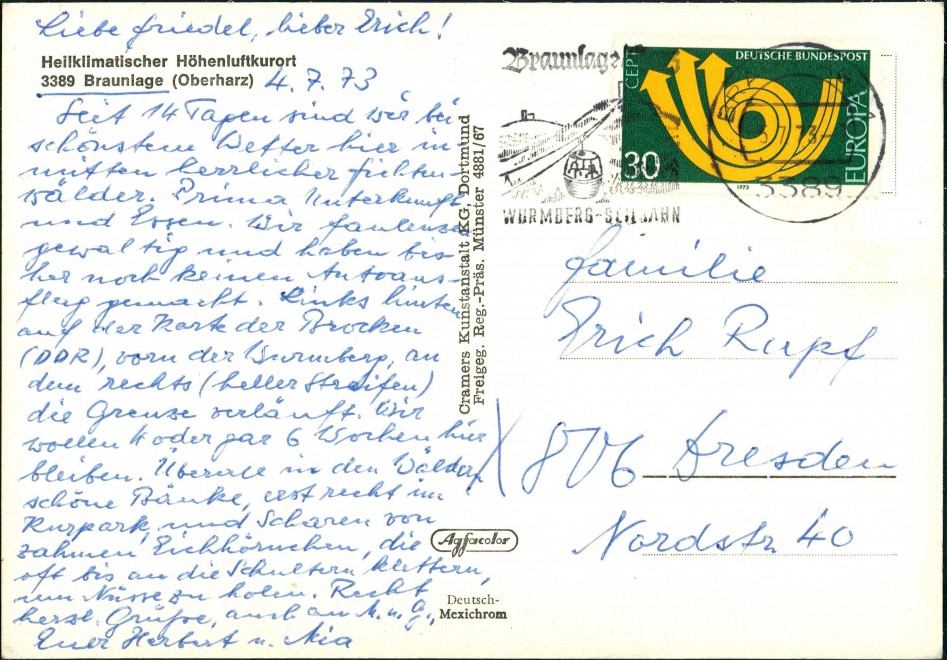 Liebe Friedel, lieber Erich!
Heilklimatischer Höhenluftkurort
3389 Braunlage (Oberharz) 4.7.73
Seit 14 Tagen sind wir bei
schönstem Wetter hier in-
mitten herrlicher Fichten-
wälder. Prima Unterkunft
und Essen. Wir faulenzen
gewaltig und haben bis-
her noch keinen Autoaus-
flug gemacht. Links hinten
auf der Karte der Brocken
(DDR), vorn der Wurmberg, an
dem rechts (heller Streifen)
die Grenze verläuft. Wir
wollen 4 oder gar 6 Wochen hier
bleiben. Überall in den Wäldern
schöne Bänke, erst recht im
Kurpark, und Scharen von
zahmen Eichhörnchen, die
oft bis an die Schultern klettern,
um Nüsse zu holen. Recht
herzl. Grüße, auch an M. u. G.,
Euer Herbert u. Mia
Cramers Kunstanstalt KG, Dortmund
Freigeg. Reg.-Präs. Münster 4881/67
Agfacolor
Deutsch-
Mexichrom
Braunlage
WURMBERG-SEILBAHN
CEPT
DEUTSCHE BUNDESPOST
EUROPA
30
1973
3389
Familie
Erich Rupf
X 806 Dresden
Nordstr. 40